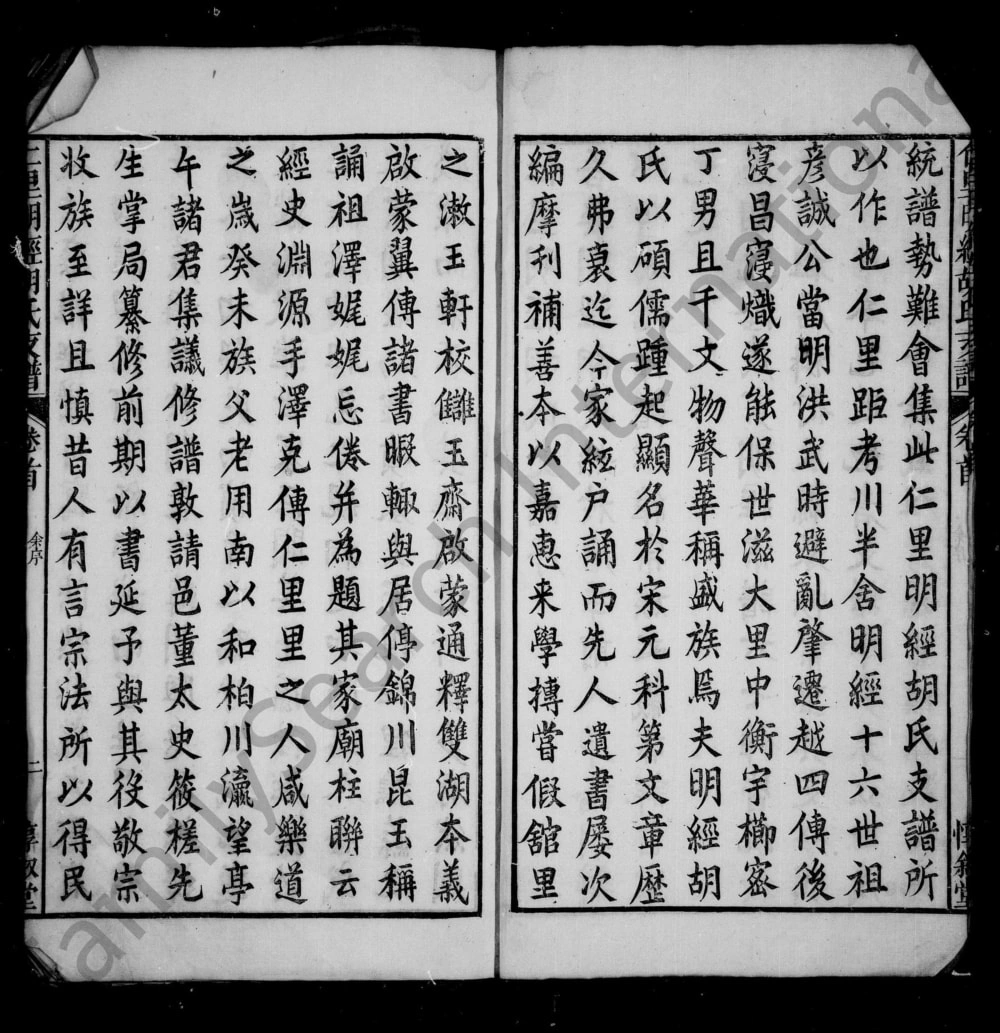 統譜勢難會集此仁里明經胡氏支譜所
以作也仁里距考川半舍明經十六世祖
彥誠公當明洪武時避亂肇遷越四傳後
寖昌寖熾遂能保世滋大里中衡宇櫛密
丁男且千文物聲華稱盛族焉夫明經胡
氏以碩儒踵起顯名於宋元科第文章歷
久弗衰迄今家絃戶誦而先人遺書屡次
編摩刊補善本以嘉惠来學摶嘗假舘里
之潄玉軒校讎玉齋啟蒙通釋雙湖本義
啟蒙翼傳諸書暇輙與居停錦川昆玉稱
誦祖澤娓娓忘倦并為題其家廟柱聯云
經史淵源手澤克傳仁里里之人咸樂道
之嵗癸未族父老用南以和柏川瀛望亭
午諸君集議修譜敦請邑董太史筱槎先
生掌局纂修前期以書延予與其役敬宗
收族至詳且慎昔人有言宗法所以得民
仁里明經胡氏支譜
卷首
余序
二
惇叙堂
FamilySearch International